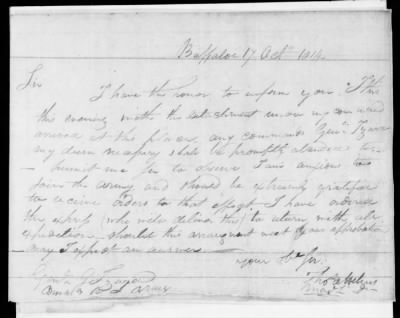 Buffaloe 17 Octr 1814.
Sir
I have the honor to inform you That
this morning with the detachment under my command
arrived at this place, any commands Genl Izard
may deem necessary shall be promptly attended to—
permit me Sir to observe I am anxious to
join the army and should be extremely gratified
to receive orders to that effect— I have ordered
the express (who will deliver this) to return with all
expedition should this arrangement meet your approbation
may I expect an answer—
your Obt Sr.
Genl G Izard
U S Army